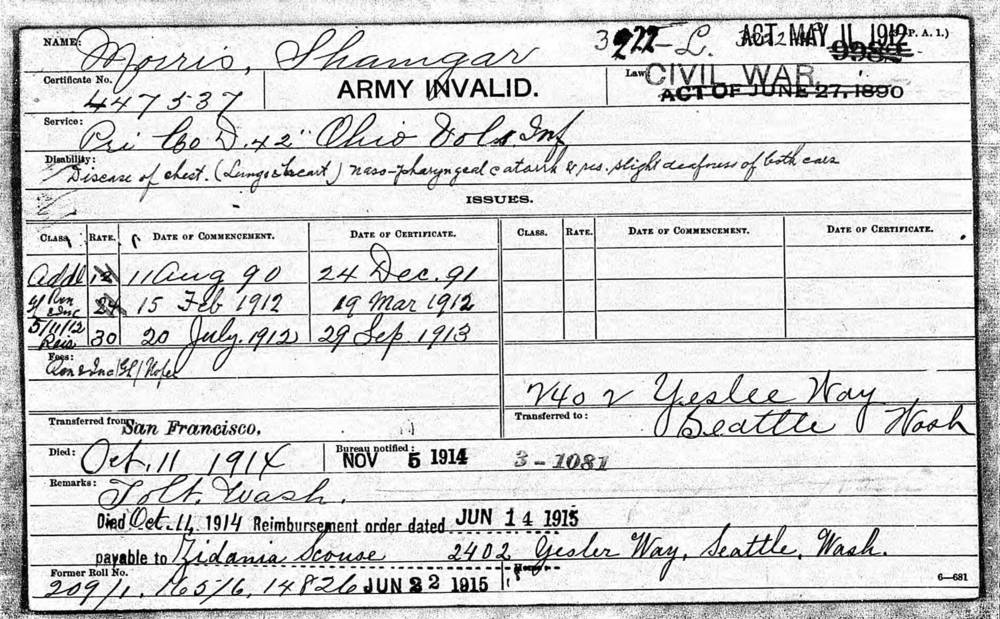 NAME: Morris, Shamgar 3222-L. ACT MAY 11 1912
Certificate No. 447537 ARMY INVALID. Law: CIVIL WAR.
ACT OF JUNE 27, 1890
Service: Pri Co D. 42" Ohio Vols Inf
Disability: Disease of chest. (Lungs & heart) naso-pharyngeal catarrh & res. slight deafness of both ears
ISSUES.
CLASS. RATE. DATE OF COMMENCEMENT. DATE OF CERTIFICATE. CLASS. RATE. DATE OF COMMENCEMENT. DATE OF CERTIFICATE.
Addl 12 11 Aug 90 24 Dec. 91
Ren & Inc 24 15 Feb 1912 19 Mar 1912
5/11/12 Reis 30 20 July. 1912 29 Sep. 1913
Fees:
2402 Yeslee Way
Transferred from San Francisco, Transferred to: Seattle Wash
Died: Oct. 11 1914 Bureau notified: NOV 5 1914 3-1081
Remarks: Tolt. Wash.
Died Oct. 11, 1914 Reimbursement order dated JUN 14 1915
payable to Zidania Scouse 2402 Yesler Way, Seattle, Wash.
Former Roll No. 209/1. 16516, 14826 JUN 22 1915
6—681